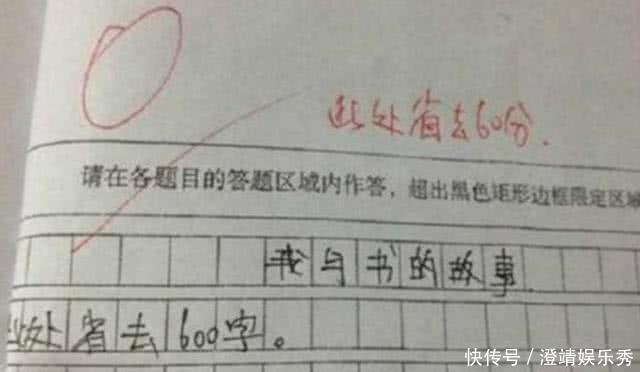 0
此处省去60分.
请在各题目的答题区域内作答，超出黑色矩形边框限定区域
我与书的故事.
此处省去600字。
快传号／澄靖娱乐秀